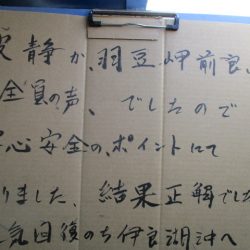 静か、羽豆岬前良、
全員の声、でしたので
心安全の、ポイントにて
りました、結果正解でした
気回後のち伊良湖沖へ